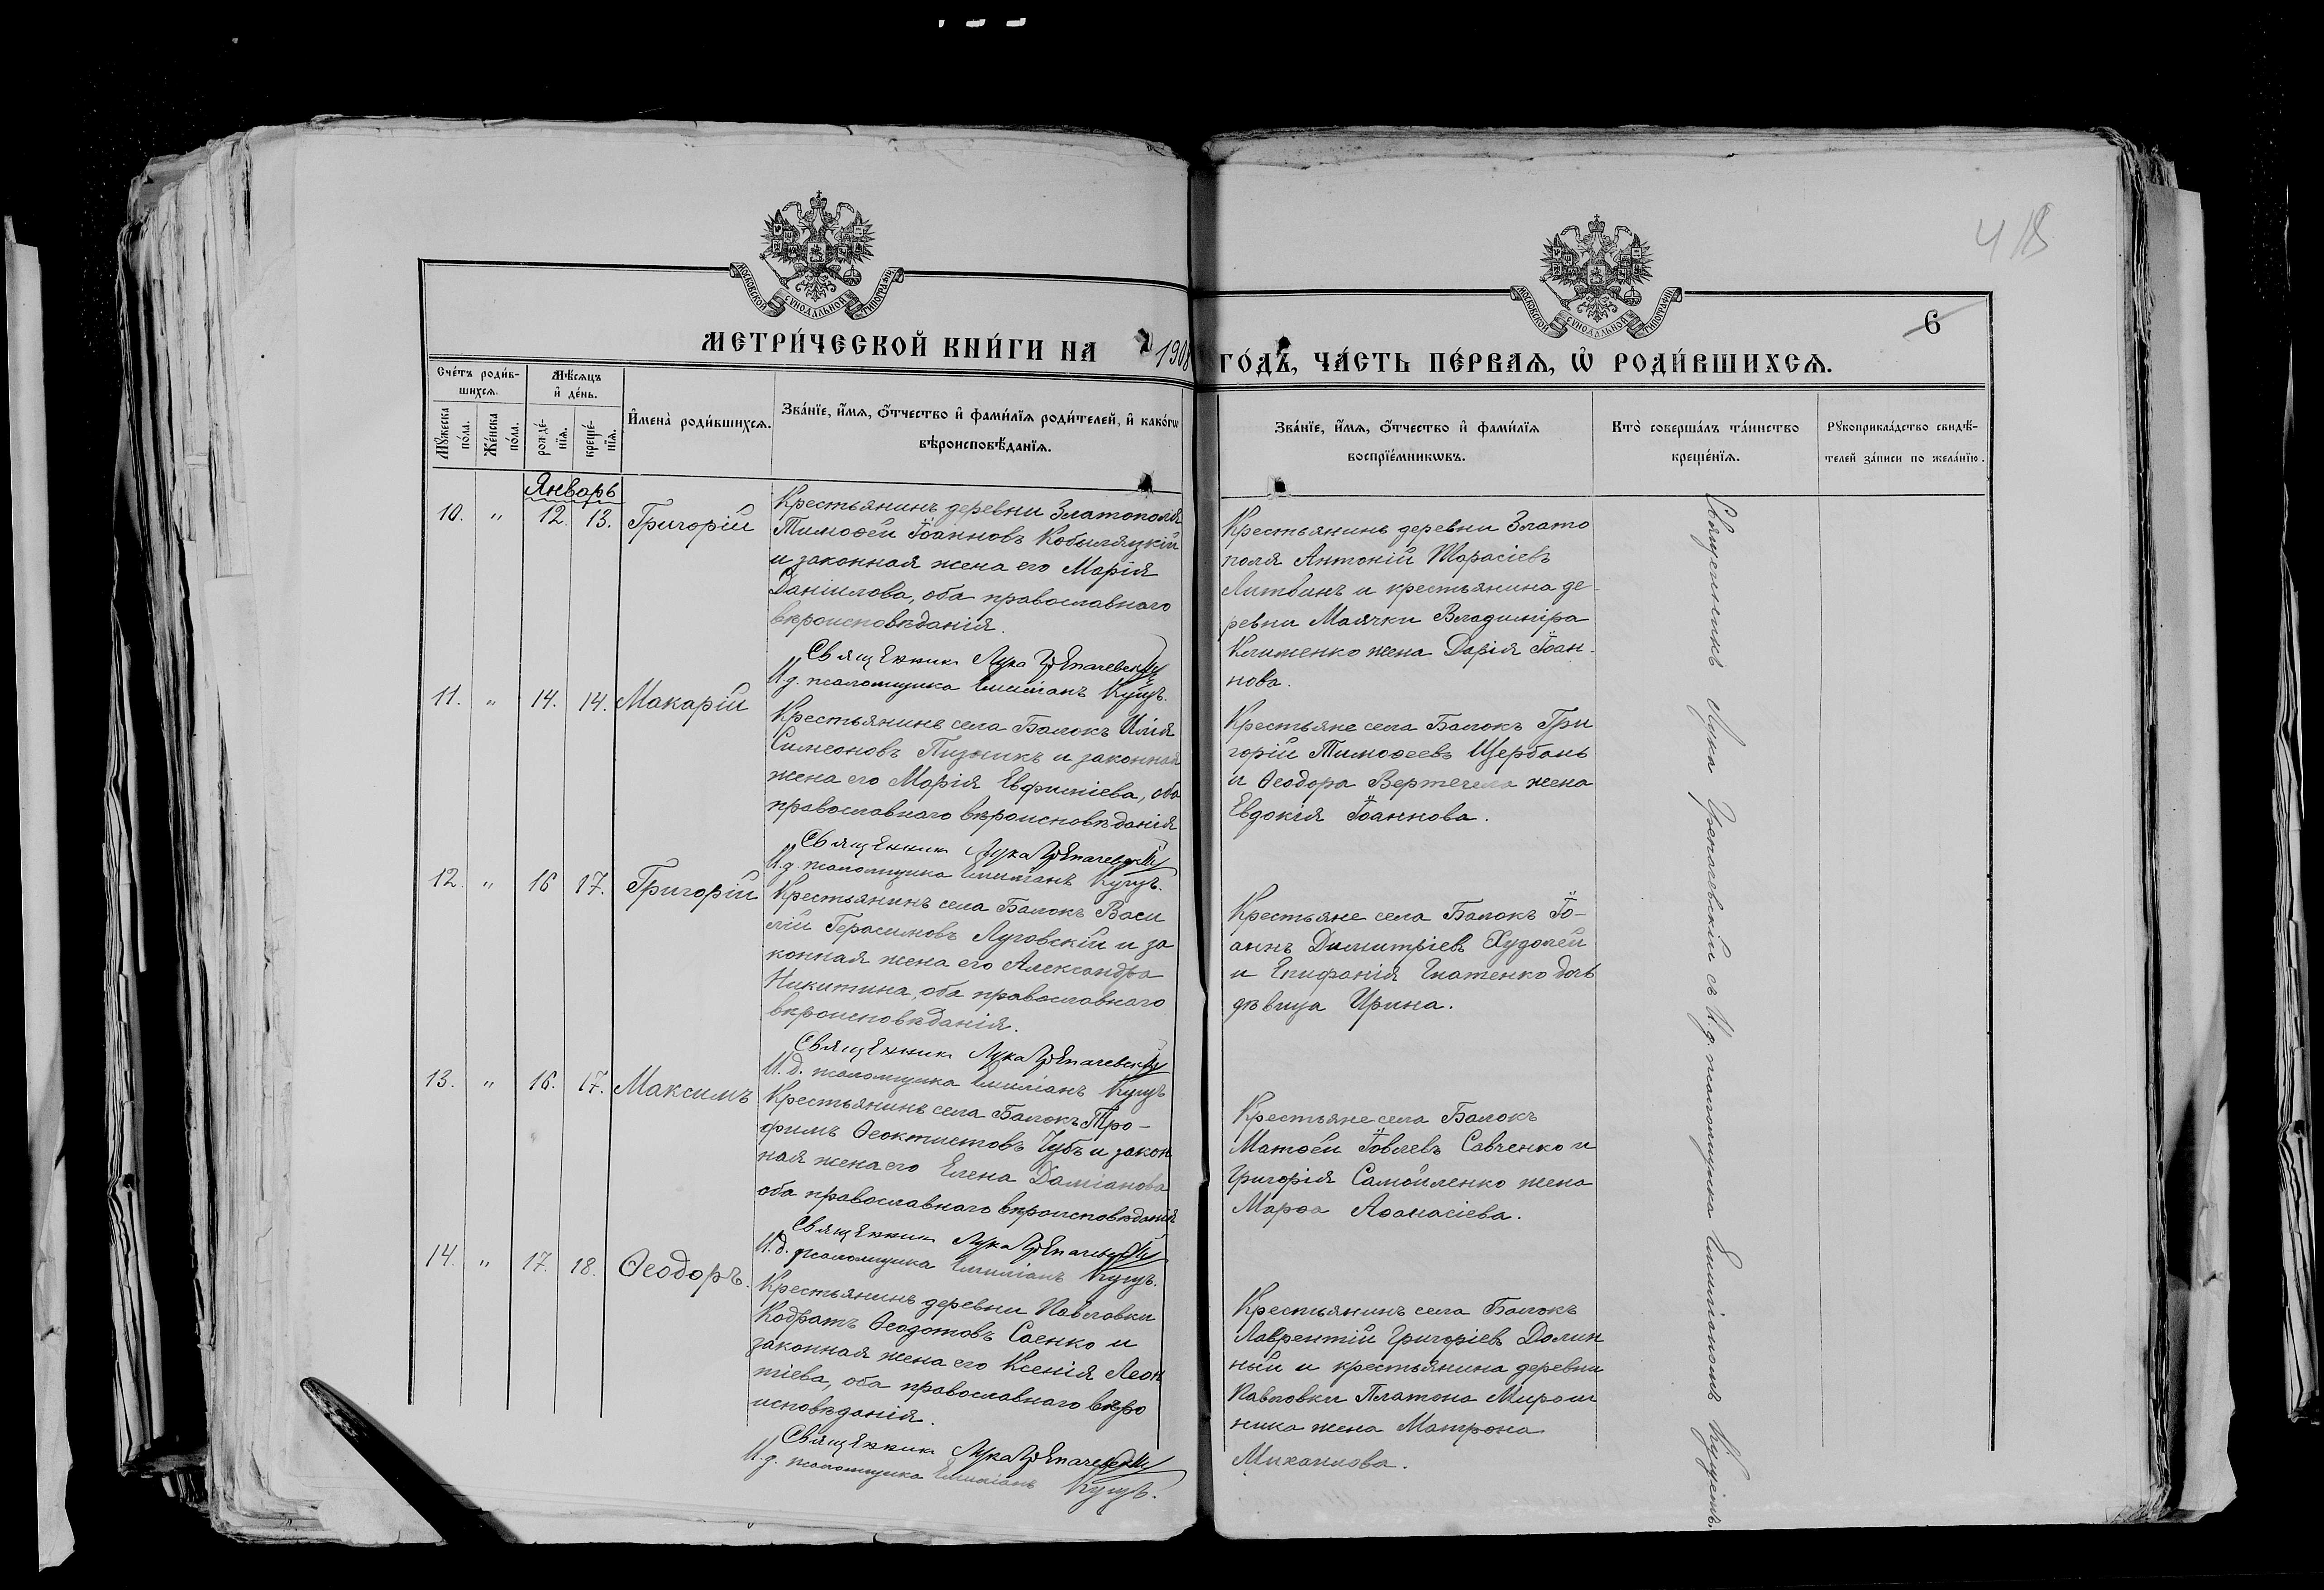 418
МОСКОВСКОЙ СѴНОДАЛЬНОЙ ТИПОГРАФІИ
МОСКОВСКОЙ СѴНОДАЛЬНОЙ ТИПОГРАФІИ
6
МЕТРИ́ЧЕСКОЙ КНИ́ГИ НА 1908 ГО́ДЪ, ЧА́СТЬ ПЕ́РВАЯ, Ѡ҆ РОДИ́ВШИХСЯ.
Сче́тъ роди́в-
шихся.
Мѣ́сяцъ
и҆ де́нь.
Мꙋ́жеска
по́ла.
Же́нска
по́ла.
рожде́-
нїя.
креще́-
нїя.
И҆мена̀ роди́вшихся.
Зва́нїе, и҆́мя, ѻ҆́тчество и҆ фами́лїя роди́телей, и҆ како́гѡ
вѣроисповѣ́данїя.
Зва́нїе, и҆́мя, ѻ҆́тчество и҆ фами́лїя
воспрїе́мникѡвъ.
Кто̀ соверша́лъ та́инство
креще́нїя.
Рꙋкоприкла́дство свидѣ́-
телей за́писи по жела́нїю.
Январь
10. " 12. 13. Григорій
Крестьянинъ деревни Златополя
Тимоѳей Іоанновъ Кобыляцкій
и законная жена его Марія
Даніилова, оба православнаго
вѣроисповѣданія.
Священникъ Лука
И.д. псаломщика Емиліанъ Куцъ.
Крестьянинъ деревни Злато
поля Антоній Тарасіевъ
Литвинъ и крестьянина де-
ревни Маячки Владиміра
Клименко жена Дарія Іоан-
нова.
11. " 14. 14. Макарій
Крестьянинъ села Балокъ Илія
Симеоновъ Пизникъ и законная
жена его Марія Евфиміева, оба
православнаго вѣроисповѣданія
Священникъ Лука
И.д. псаломщика Емиліанъ Куцъ.
Крестьяне села Балокъ Гри
горій Тимоѳеевъ Щербань
и Ѳеодора Вертегела жена
Евдокія Іоаннова.
12. " 16 17. Григорій
Крестьянинъ села Балокъ Васи
лій Герасимовъ Луговскій и за
конная жена его Александра
Никитина, оба православнаго
вѣроисповѣданія.
Священникъ Лука
И.д. псаломщика Емиліанъ Куцъ
Крестьяне села Балокъ Іо-
аннъ Димитріевъ Худолей
и Епифанія Игнатенко дочь
дѣвица Ирина.
13. " 16. 17. Максимъ
Крестьянинъ села Балокъ Тро-
фимъ Ѳеоктистовъ Чубъ и закон
ная жена его Елена Даміанова
оба православнаго вѣроисповѣданія
Священникъ Лука
И.д. псаломщика Емиліанъ Куцъ.
Крестьяне села Балокъ
Матѳей Іовлевъ Савченко и
Григорія Самойленко жена
Марѳа Аѳанасіева.
14. " 17. 18. Ѳеодоръ.
Крестьянинъ деревни Павловки
Кодратъ Ѳеодотовъ Саенко и
законная жена его Ксенія Леон
тіева, оба православнаго вѣро
исповѣданія.
Священникъ Лука
И.д. псаломщика Емиліанъ Куцъ.
Крестьянинъ села Балокъ
Лаврентій Григоріевъ Долин
ный и крестьянина деревни
Павловки Платона Мирош
ника жена Матрона
Михаилова.
Священникъ Лука съ И.д. псаломщика Емиліаномъ Куцемъ.